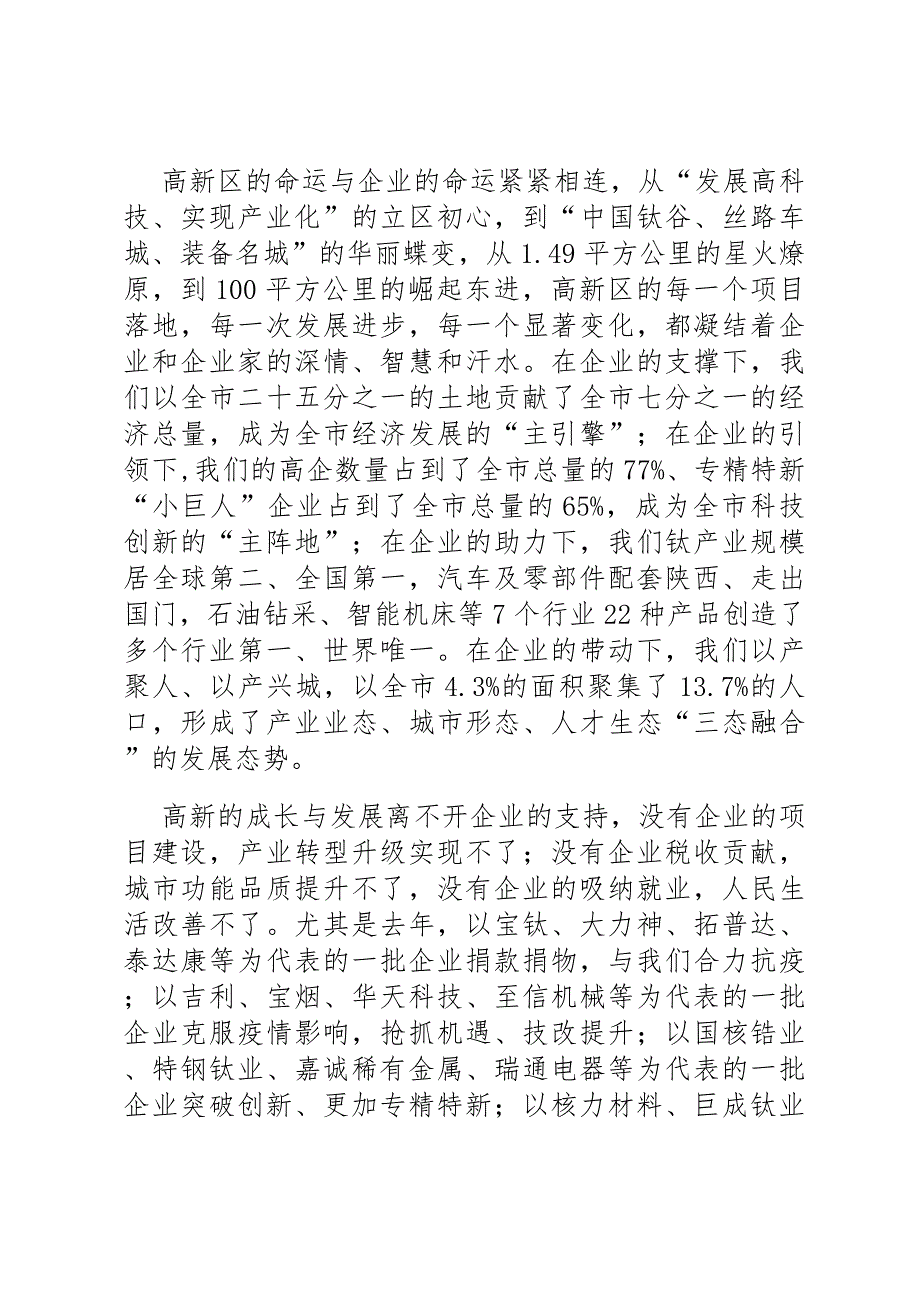 高新区的命运与企业的命运紧紧相连，从“发展高科
技、实现产业化”的立区初心，到“中国钛谷、丝路车
城、装备名城”的华丽蝶变，从 1.49 平方公里的星火燎
原，到 100 平方公里的崛起东进，高新区的每一个项目
落地，每一次发展进步，每一个显著变化，都凝结着企
业和企业家的深情、智慧和汗水。在企业的支撑下，我
们以全市二十五分之一的土地贡献了全市七分之一的经
济总量，成为全市经济发展的“主引擎”；在企业的引
领下,我们的高企数量占到了全市总量的 77%、专精特新
“小巨人”企业占到了全市总量的 65%，成为全市科技
创新的“主阵地”；在企业的助力下，我们钛产业规模
居全球第二、全国第一，汽车及零部件配套陕西、走出
国门，石油钻采、智能机床等 7 个行业 22 种产品创造了
多个行业第一、世界唯一。在企业的带动下，我们以产
聚人、以产兴城，以全市 4.3%的面积聚集了 13.7%的人
口，形成了产业业态、城市形态、人才生态“三态融合
”的发展态势。
高新的成长与发展离不开企业的支持，没有企业的项
目建设，产业转型升级实现不了；没有企业税收贡献，
城市功能品质提升不了，没有企业的吸纳就业，人民生
活改善不了。尤其是去年，以宝钛、大力神、拓普达、
泰达康等为代表的一批企业捐款捐物，与我们合力抗疫
；以吉利、宝烟、华天科技、至信机械等为代表的一批
企业克服疫情影响，抢抓机遇、技改提升；以国核锆业
、特钢钛业、嘉诚稀有金属、瑞通电器等为代表的一批
企业突破创新、更加专精特新；以核力材料、巨成钛业